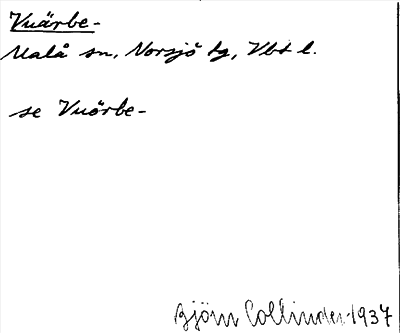 Vuärbe-
Malå sn, Norsjö tg, Vbt l.
se Vuörbe-
Björn Collinder 1937